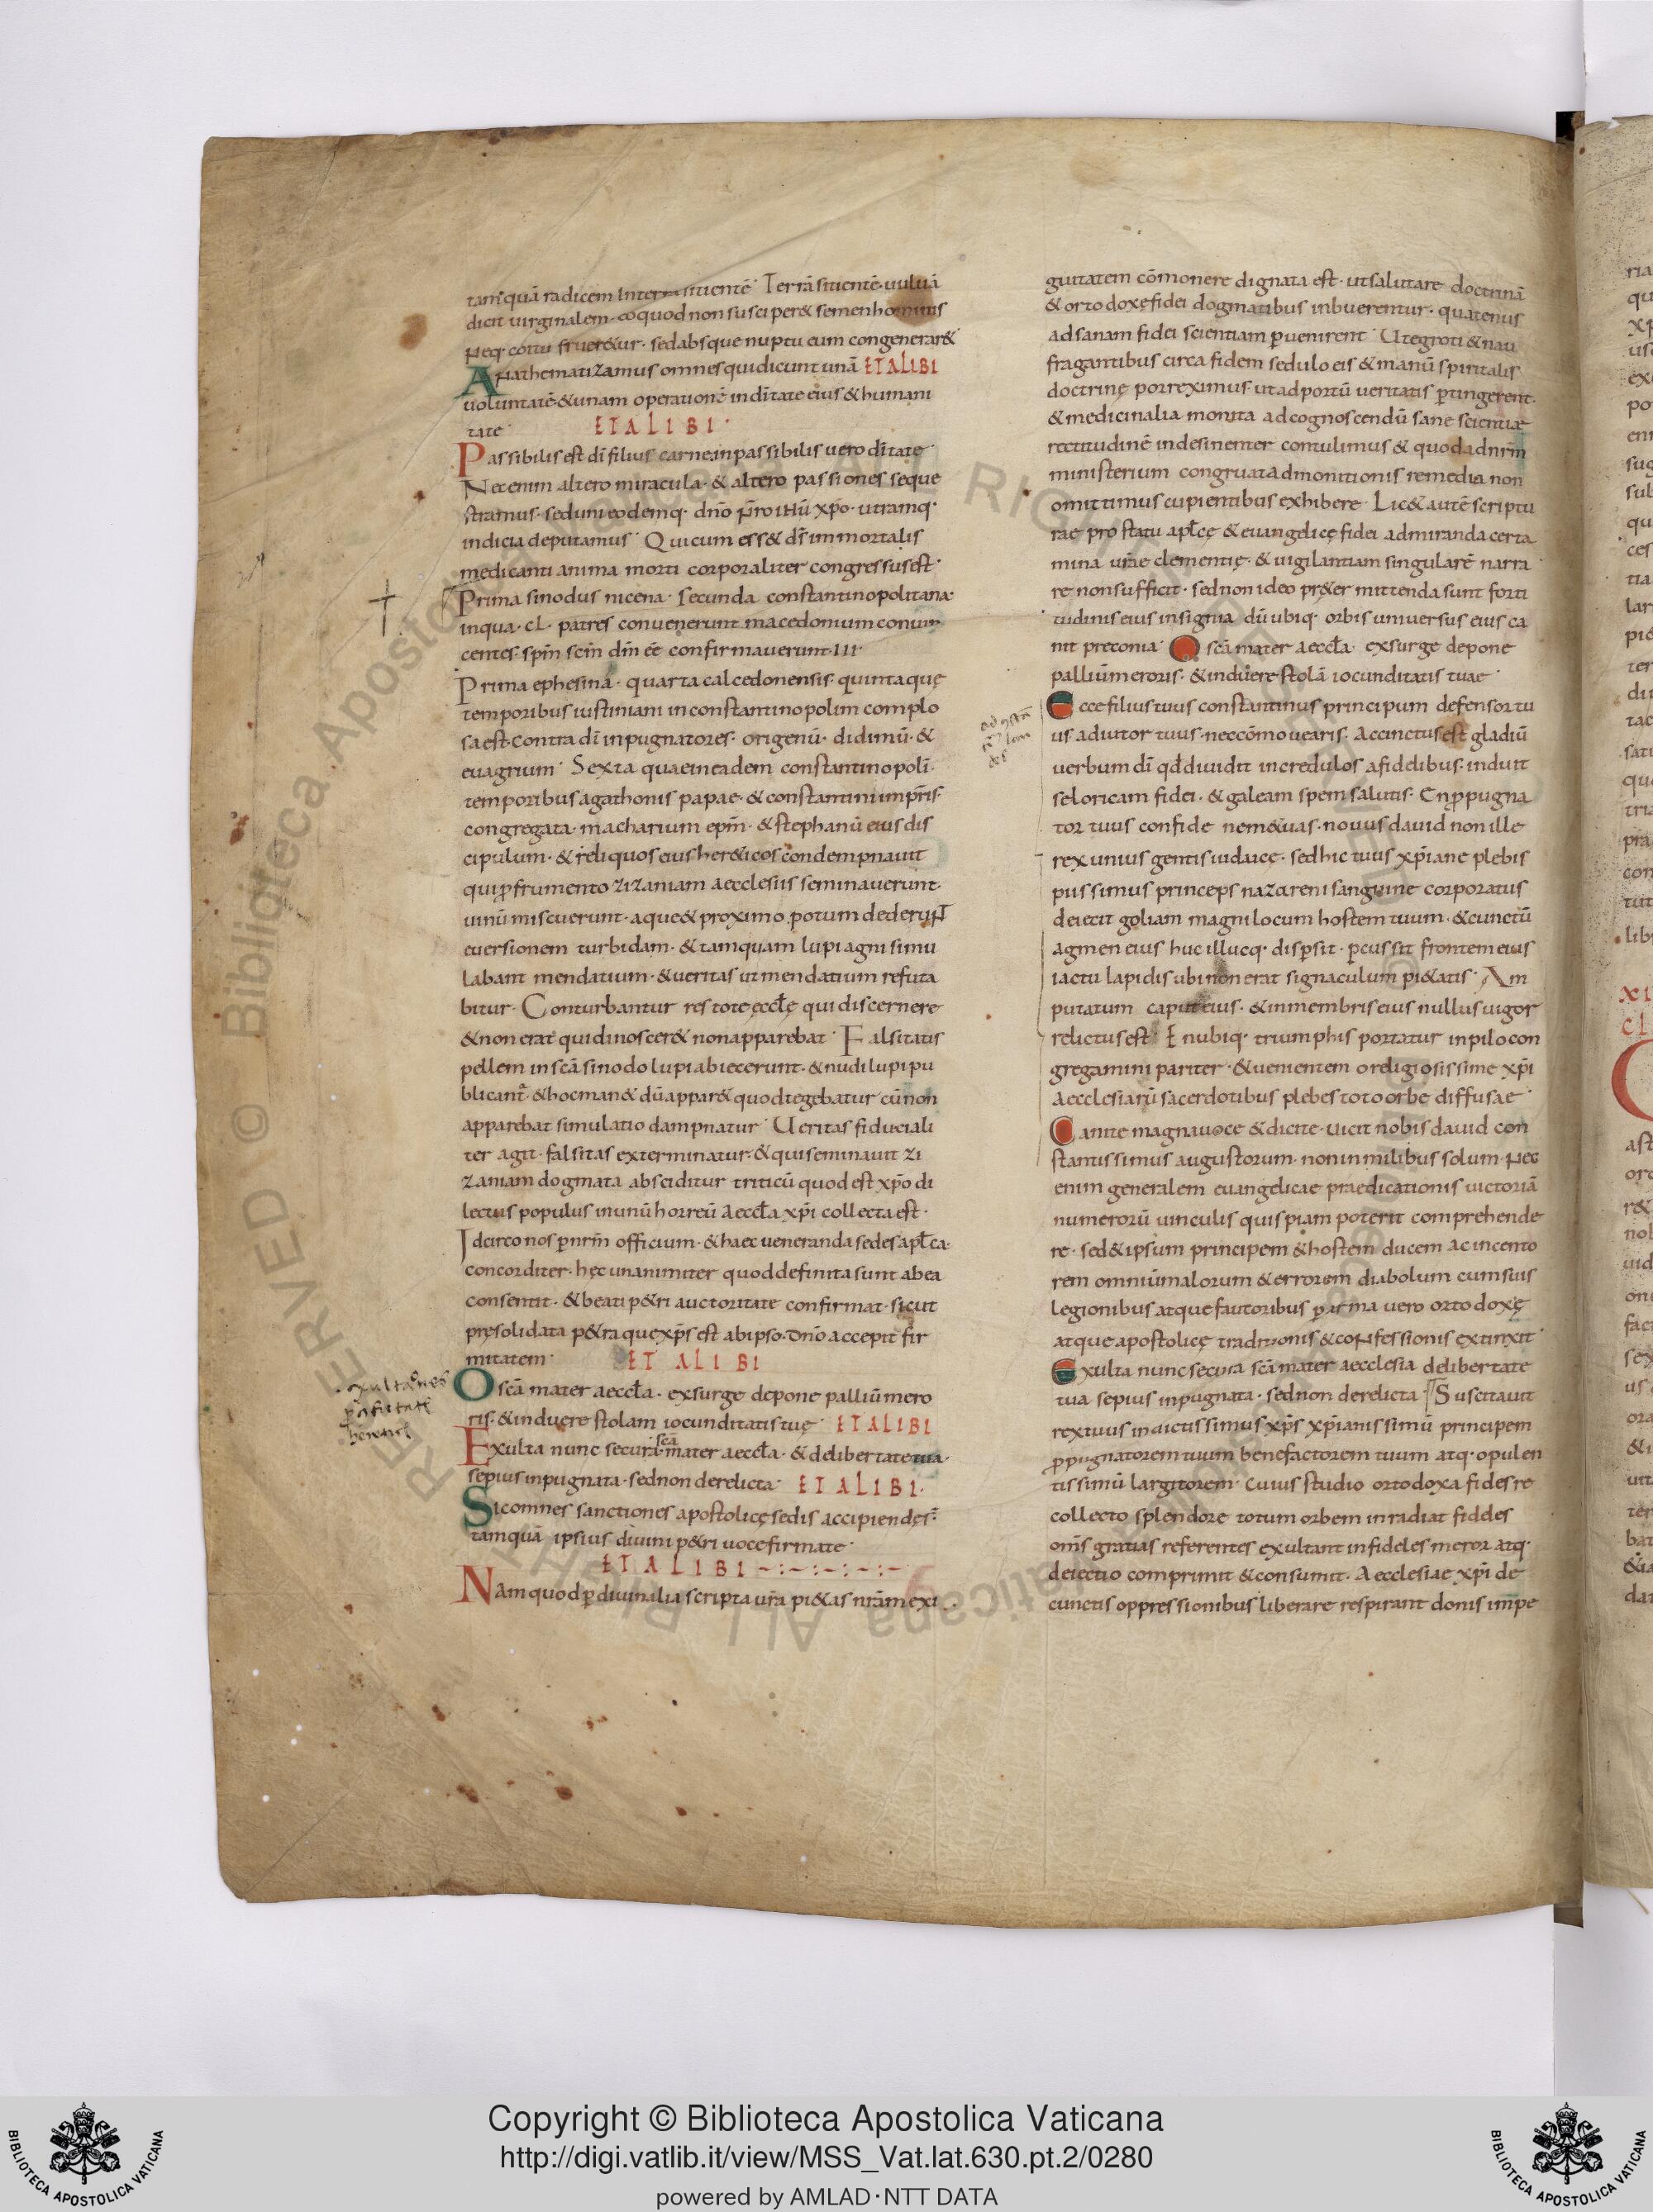 tamquā radicem Interra sitientē· Terrā sitientē uuluā
dicit uirginalem· eo quod non susciper& semen hominis
neq· coitu fruer&ur· sed absque nuptu eum congenerar&·
Anathematizamus omnes qui dicunt unā ET ALIBI
uoluntatē· & unam operationē in dītate eius & humani
tate· ET ALIBI·
Passibilis est dī filius carne inpassibilis uero dītate·
Nec enim altero miracula· & altero passiones seque
stramus· sed uni eodemq· dnō nrō ihū xpō· utramq·
indicia deputamus· Qui cum ess& dī inmortalis
medicanti anima morti corporaliter congressus est·
Prima sinodus nicena· Secunda constantinopolitana·
in qua· CL· patres conuenerunt macedonium conuin
centes· spm̄ scm̄ dm̄ eē confirmauerunt· III·
Prima ephesina· quarta calcedonensis· quinta quę
temporibus iustiniani in constantinopolim complo
sa est· contra dī inpugnatores· origenū· didimū· &
euagrium· Sexta quae in eadem constantinopolī·
temporibus agathonis papae· & constantini imprīs·
congregata· macharium epm̄· & stephanū eius dis
cipulum· & reliquos eius her&icos condempnauit
qui pfrumento zizaniam aecclesiis seminauerunt·
uinū miscuerunt· aque & proximo potum dederunt
euersionem turbidam· & tamquam lupi agni simu
labant mendatium· & ueritas ut mendatium refuta
bitur· Conturbantur res tote ęcclę qui discernere
& non erat qui dinoscer& non apparebat· Falsitatis
pellem in scā sinodo lupi abiecerunt· & nudi lupi pu
blicant̄· & hoc man& dū appar& quod tegebatur cū non
apparebat simulatio dampnatur· Ueritas fiduciali
ter agit· falsitas exterminatur· & qui seminauit zi
zaniam dogmata absciditur triticū quod est xpō di
lectus populus in unū horreū aeccla xpī collecta est·
Idcirco nos p nrm̄ officium· & haec ueneranda sedes aplca·
concorditer· hęc unanimiter quod definita sunt ab ea
consentit· & beati p&ri auctoritate confirmat· sicut
presolidata p&ra que xps̄ est ab ipso dnō accepit fir
mitatem· ET ALIBI
O scā mater aeccla· exsurge depone palliū mero
ris· & induere stolam iocunditatis tuę· ET ALIBI
scā
Exulta nunc secura mater aeccla· & de libertate tua·
sepius inpugnata· sed non derelicta· ET ALIBI·
Sic omnes sanctiones apostolicę sedis accipiendęs·
tamquā ipsius diuini p&ri uoce firmate·
ET ALIBI
Nam quod p diuinalia scripta urā pi&as nrām exi
guitatem cōmonere dignata est· ut salutare doctrinā
& ortodoxę fidei dogmatibus inbuerentur· quatenus
ad sanam fidei scientiam puenirent· Ut egroti & nau
fragantibus circa fidem sedulo eis & manū spiritalis
doctrinę porreximus· ut ad portū ueritatis ptingerent·
& medicinalia monita ad cognoscendū sane scientiae
rectitudinē indesinenter contulimus & quod ad nrm̄
ministerium congruat admonitionis remedia non
omittimus cupientibus exhibere· Lic& autē scriptu
rae pro statu aplcę & euangelicę fidei admiranda certa
mina urae clementię· & uigilantiam singularē narra
re non sufficit· sed non ideo pr&ermittenda sunt forti
tudinis eius insignia dū ubiq· orbis uniuersus eius ca
nit preconia· O scā mater aeccla· exsurge depone
palliū meroris· & induere stolā iocunditatis tuae·
Ecce filius tuus constantinus principum defensor tu
us· adiutor tuus· nec cōmouearis· Accinctus est gladiū
uerbum dī qd diuidit incredulos a fidelibus· induit
se loricam fidei· & galeam spem salutis· En ppugna
tor tuus confide ne m&uas· nouus dauid non ille
rex unius gentis iudaicę· sed hic tuus xpīane plebis
piissimus princeps nazareni sanguine corporatus
deiecit goliam magnilocum hostem tuum· & cunctū
agmen eius huc illucq· dispsit· pcussit frontem eius
iactu lapidis ubi non erat signaculum pi&atis· Am
putatum caput eius· & in membris eius nullus uigor
relictus est· E nubiq· triumphis portatur in pilo con
gregamini pariter· & uenientem o religiosissime xpī
aecclesiarū sacerdotibus plebes toto orbe diffusae·
Canite magna uoce & dicite· uicit nobis dauid con
stantissimus augustorum· non in milibus solum· nec
enim generalem euangelicae praedicationis uictoriā
numerorū uinculis quispiam poterit comprehende
re· sed & ipsum principem & hostem ducem ac incento
rem omniū malorum & errorem diabolum cum suis
legionibus atque fautoribus p arma uero ortodoxę
atque apostolicę traditionis & confessionis extinxit·
Exulta nunc secura scā mater aecclesia de libertate
tua sepius inpugnata· sed non derelicta· Suscitauit
rex tuus inuictissimus xps̄ xpīanissimū principem
ppugnatorem tuum benefactorem tuum atq· opulen
tissimū largitorem· Cuius studio ortodoxa fides re
collecto splendore totum orbem inradiat fiddes
omīs gratias referentes exultant infideles meror atq·
deiectio comprimit & consumit· Aecclesiae xpī de
cunctis oppressionibus liberare respirant donis impe
Copyright © Biblioteca Apostolica Vaticana
http://digi.vatlib.it/view/MSS_Vat.lat.630.pt.2/0280
powered by AMLAD·NTT DATA
BIBLIOTECA APOSTOLICA VATICANA
BIBLIOTECA APOSTOLICA VATICANA